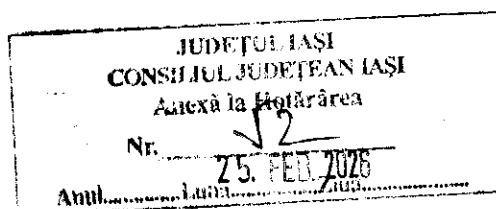 JUDEȚUL IAȘI
CONSILIUL JUDEȚEAN IAȘI
Anexă la Hotărârea
Nr.
25. FEB. 2026
Anul......Luna......Ziua......